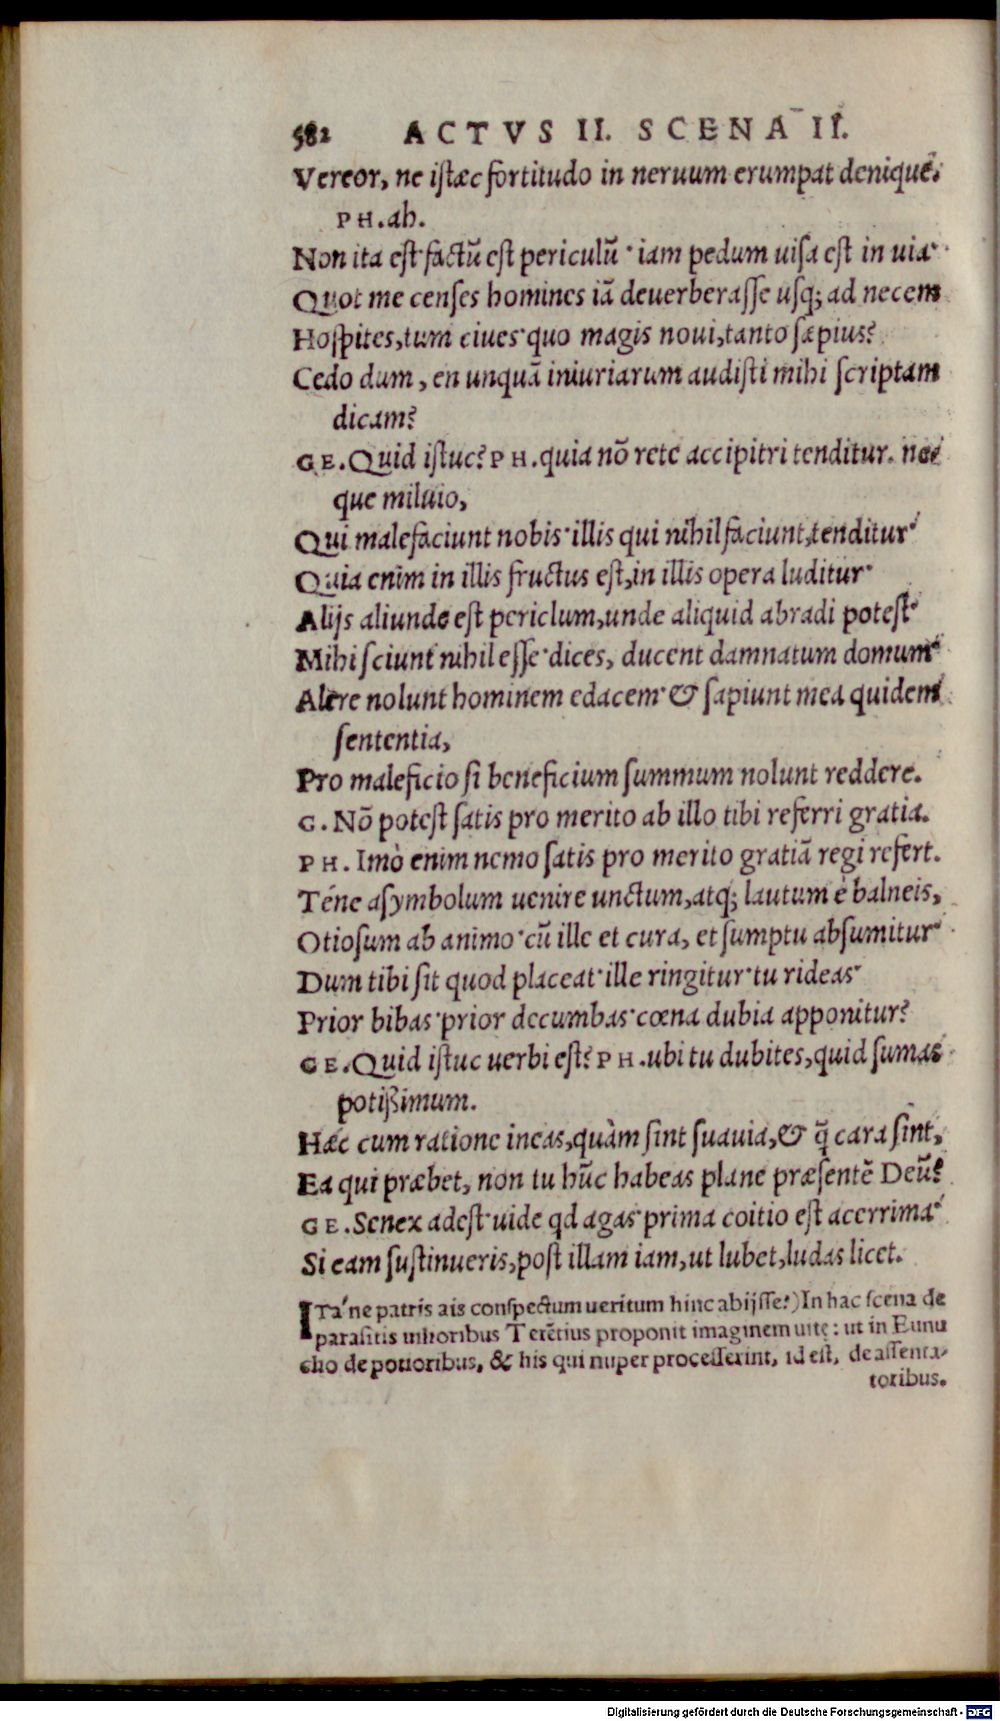 582 ACTVS II. SCENA II.
Vereor, ne istæc fortitudo in neruum erumpat denique.
PH. ah.
Non ita est· factũ est periculũ · iam pedum uisa est in uia·
Quot me censes homines iã deuerberasse usq; ad necem
Hospites, tum ciues· quo magis noui, tanto sæpius?
Cedo dum, en unquã iniuriarum audisti mihi scriptam
dicam?
GE. Quid istuc? PH. quia nõ rete accipitri tenditur. ne⸗
que miluio,
Qui malefaciunt nobis· illis qui nihil faciunt, tenditur·
Quia enim in illis fructus est, in illis opera luditur·
Alijs aliunde est periclum, unde aliquid abradi potest·
Mihi sciunt nihil esse· dices, ducent damnatum domum·
Alere nolunt hominem edacem· & sapiunt mea quidem
sententia,
Pro maleficio si beneficium summum nolunt reddere.
G. Nõ potest satis pro merito ab illo tibi referri gratia.
PH. Imò enim nemo satis pro merito gratiã regi refert.
Téne asymbolum uenire unctum, atq; lautum è balneis,
Otiosum ab animo· cũ ille et cura, et sumptu absumitur·
Dum tibi sit quod placeat· ille ringitur· tu rideas·
Prior bibas· prior decumbas· cœna dubia apponitur?
GE. Quid istuc uerbi est? PH. ubi tu dubites, quid sumas
potißimum.
Hæc cum ratione ineas, quàm sint suauia, & q̃ cara sint,
Ea qui præbet, non tu hũc habeas plane præsentẽ Deũ?
GE. Senex adest· uide qd agas· prima coitio est acerrima·
Si eam sustinueris, post illam iam, ut lubet, ludas licet.
ITa'ne patris ais conspectum ueritum hinc abijsse?) In hac scena de
parasitis uilioribus Terẽtius proponit imaginem uitę: ut in Eunu
cho de potioribus, & his qui nuper processerint, id est, de assenta-
toribus.
Digitalisierung gefördert durch die Deutsche Forschungsgemeinschaft - DFG